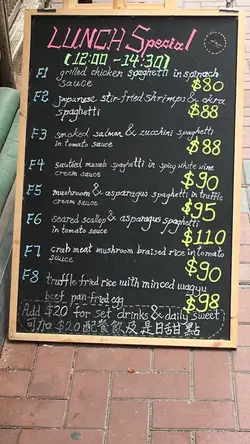 LUNCH Special
(12:00 - 14:30)
F1 grilled chicken spaghetti in spinach
sauce $80
F2 Japanese stir-fried shrimps & okra
spaghetti $88
F3 smoked salmon & zucchini spaghetti
in tomato sauce $88
F4 sautéed mussels spaghetti in spicy white wine
cream sauce $90
F5 mushroom & asparagus spaghetti in truffle
cream sauce $95
F6 seared scallop & asparagus spaghetti
in tomato sauce $110
F7 crab meat mushroom braised rice in tomato
sauce $90
F8 truffle fried rice with minced wagyu
beef pan-fried egg $98
Add $20 for set drinks & daily sweet
可加 $20 配餐飲及是日甜點